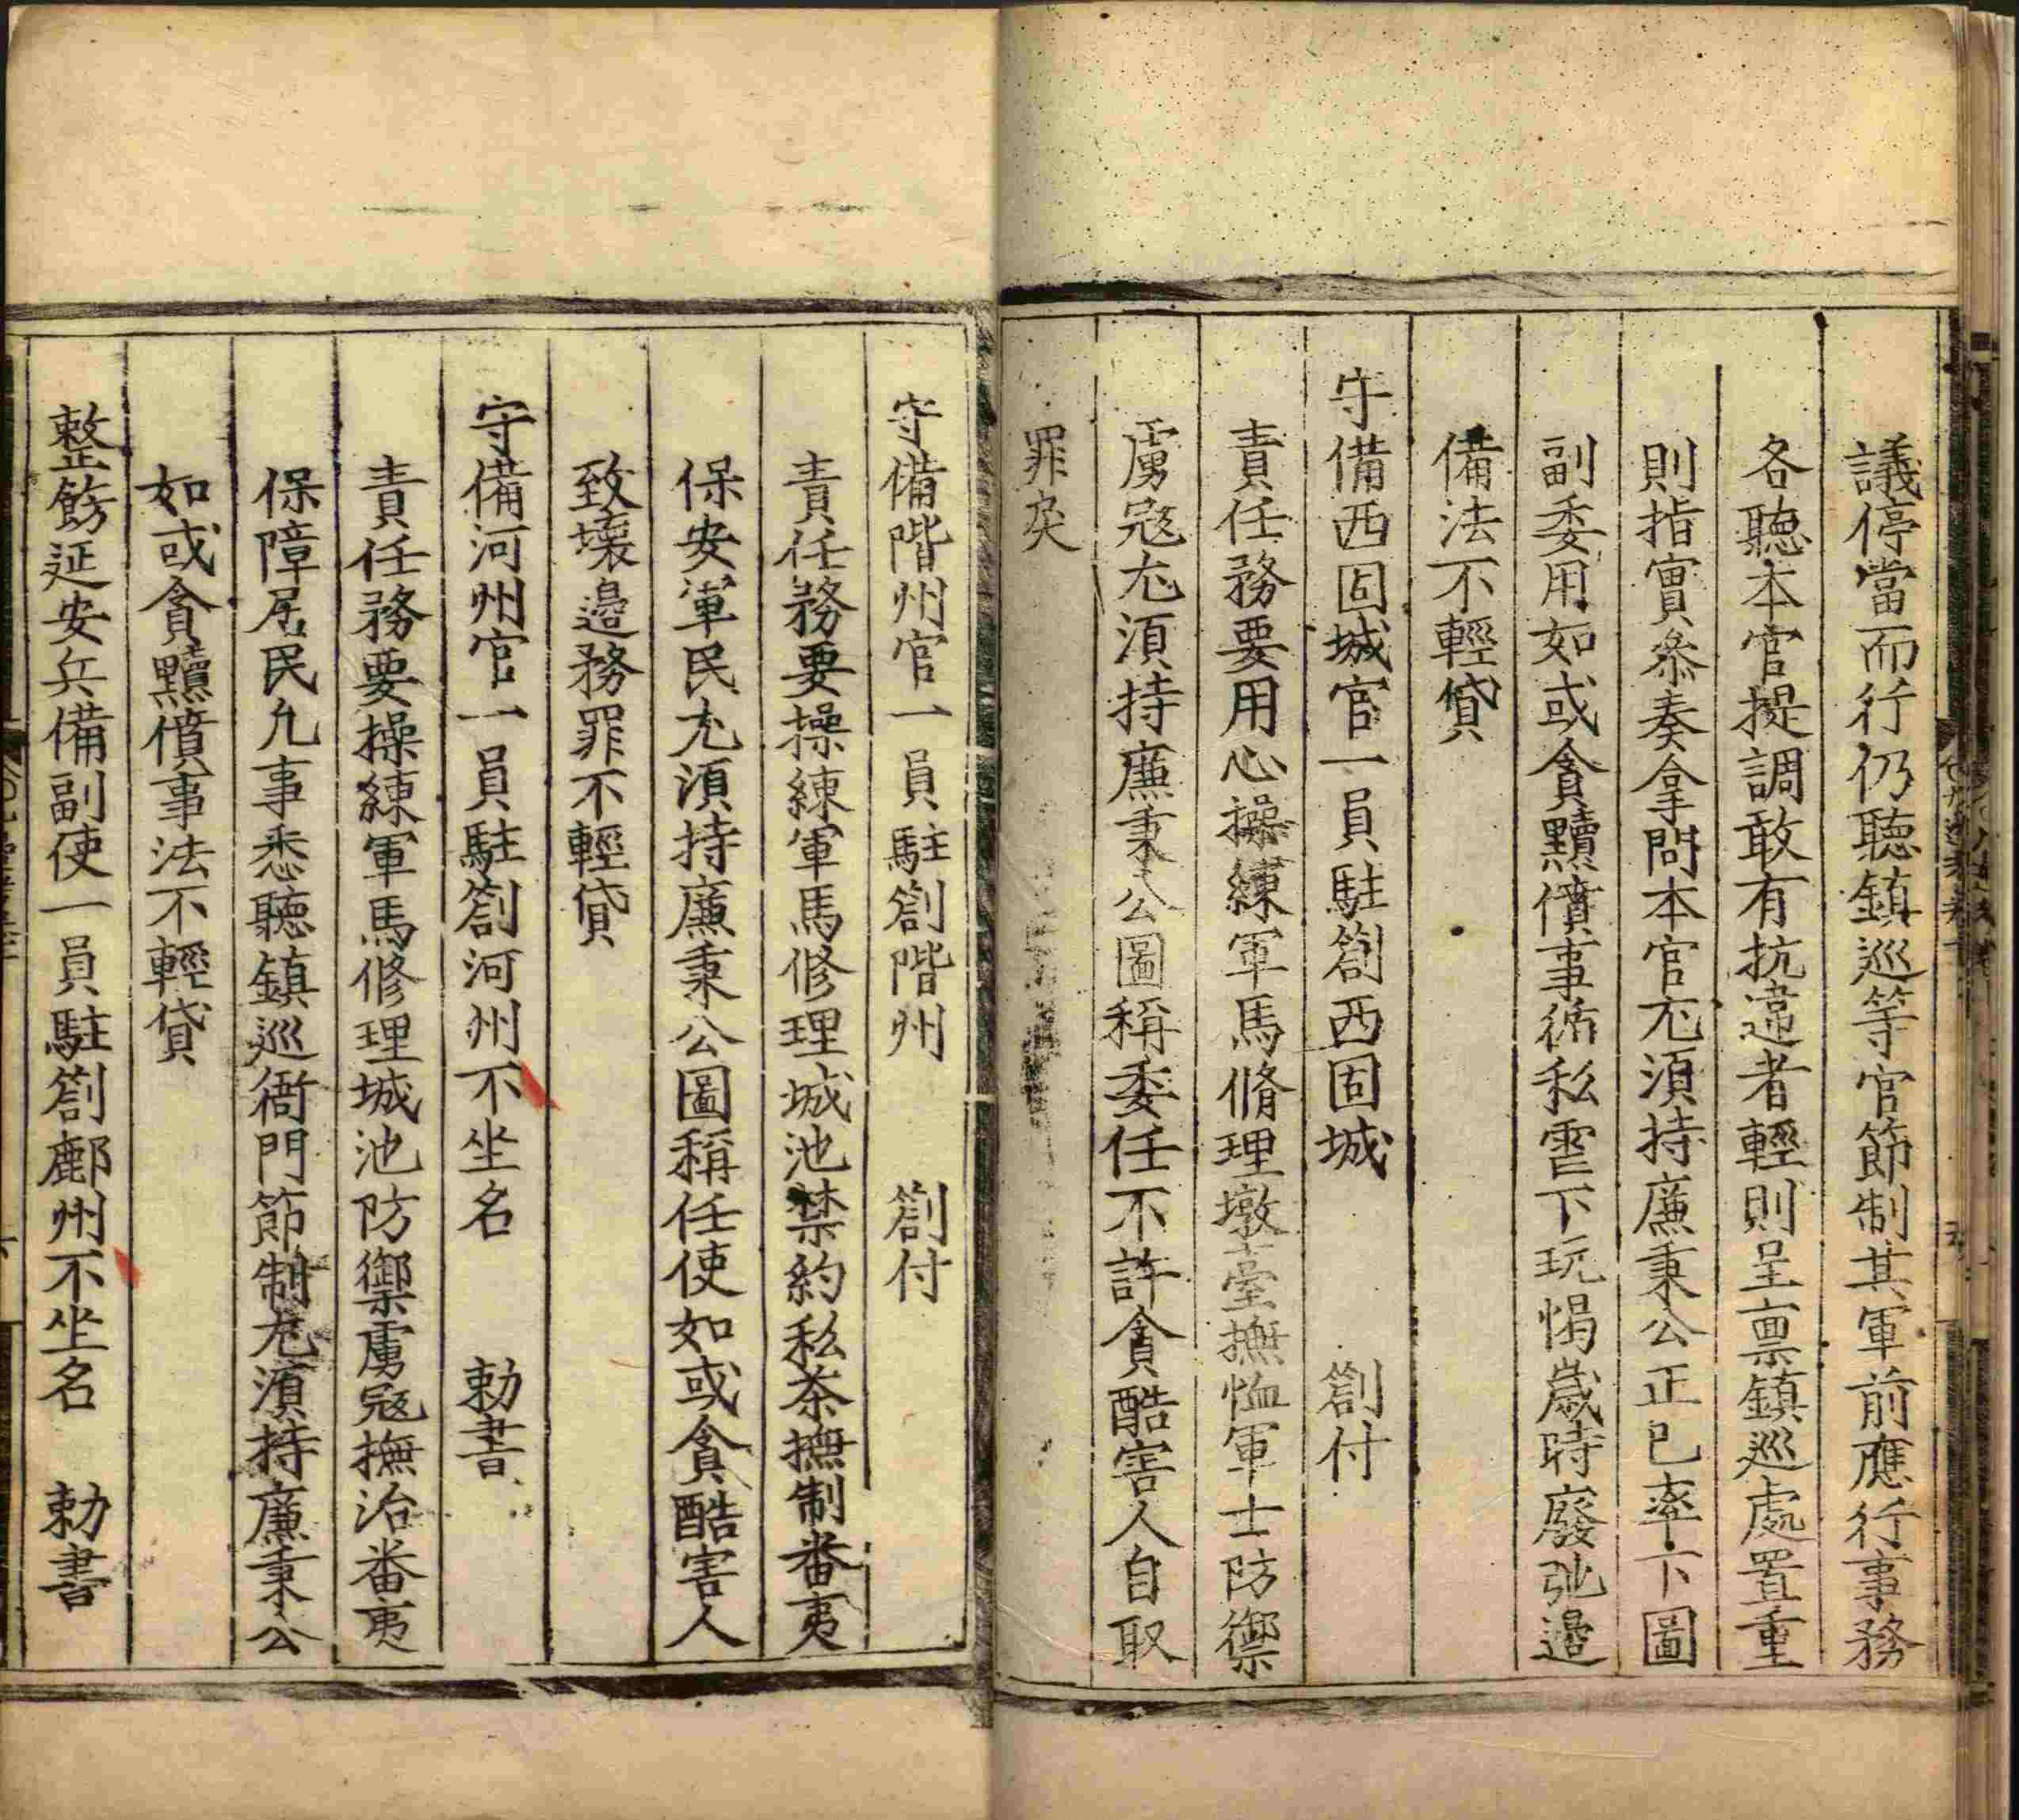 議停當而行仍聽鎮巡等官節制其軍前應行事務
各聽本官提調敢有抗違者輕則呈禀鎮巡處置重
則指實叅奏拿問本官尤須持廉秉公正己率下圖
副委用如或貪黷僨事循私虐下玩愒歲時廢弛邉
備法不輕貸
守備西固城官一員駐劄西固城　劄付
責任務要用心操練軍馬脩理墩臺撫恤軍士防禦
虜冦尤須持廉秉公圖稱委任不許貪酷害人自取
罪戾
守備階州官一員駐劄階州　劄付
責任務要操練軍馬修理城池禁約私茶撫制番夷
保安軍民尤須持廉秉公圖稱任使如或貪酷害人
致壞邉務罪不輕貸
守備河州官一員駐劄河州不坐名　勅書
責任務要操練軍馬修理城池防禦虜冦撫治番夷
保障居民凢事悉聽鎮巡衙門節制尤須持廉秉公
如或貪黷僨事法不輕貸
整飭延安兵備副使一員駐劄鄜州不坐名　勅書